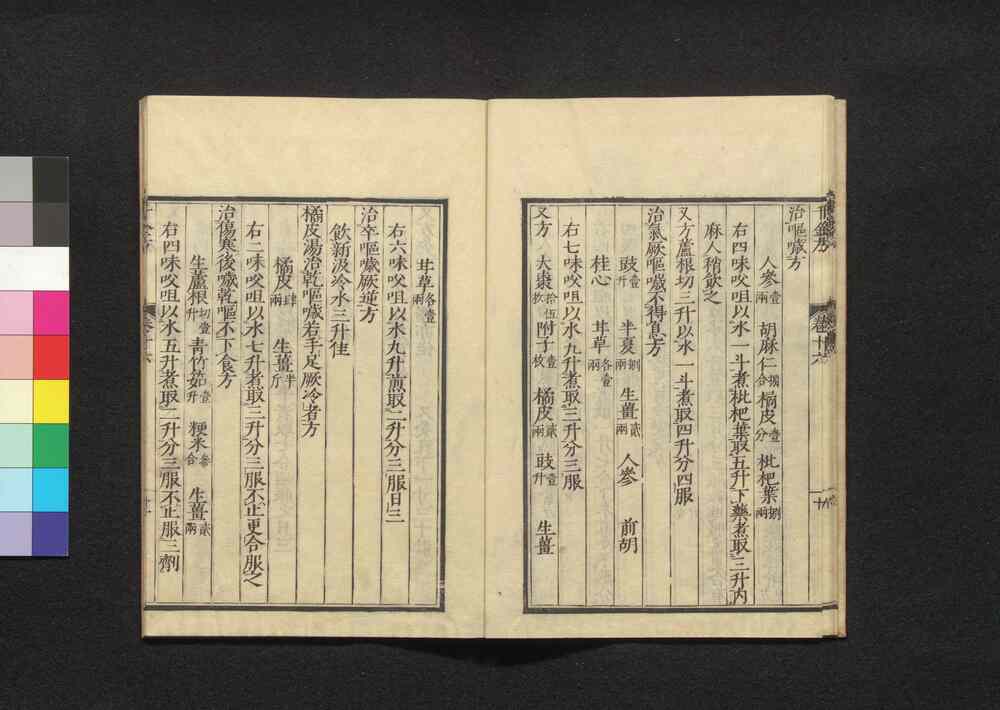 千金方
卷十六
十八
治嘔噦方
人參壹兩 胡麻仁捌合 橘皮壹分 枇杷葉捌兩
右四味㕮咀以水一斗煮枇杷葉取五升下藥煮取三升内
麻人稍飲之
又方蘆根切三升以水一斗煮取四升分四服
治氣厥嘔噦不得息方
豉壹升 半夏捌兩 生薑貳兩 人參 前胡
桂心 甘草各壹兩
右七味㕮咀以水九升煮取三升分三服
又方 大棗拾伍枚 附子壹枚 橘皮貳兩 豉壹升 生薑
甘草各壹兩
右六味㕮咀以水九升煎取二升分三服日三
治卒嘔噦厥逆方
飲新汲冷水三升佳
橘皮湯治乾嘔噦若手足厥冷者方
橘皮肆兩 生薑半斤
右二味㕮咀以水七升煮取三升分三服不止更合服之
治傷寒後噦乾嘔不下食方
生蘆根切壹升 青竹茹壹升 粳米參合 生薑貳兩
右四味㕮咀以水五升煮取二升分三服不止服三劑